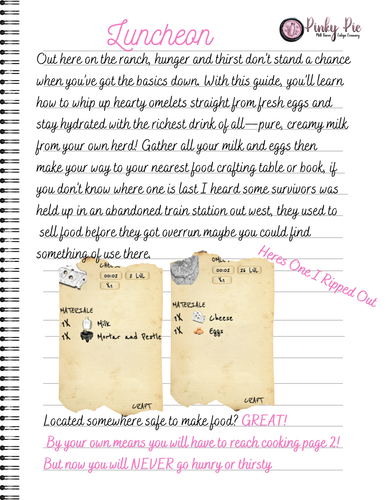 Luncheon
Pinky Pie
Out here on the ranch, hunger and thirst don't stand a chance
when you've got the basics down. With this guide, you'll learn
how to whip up hearty omelets straight from fresh eggs and
stay hydrated with the richest drink of all—pure, creamy milk
from your own herd! Gather all your milk and eggs then
make your way to your nearest food crafting table or book, if
you don't know where one is last I heard some survivors was
held up in an abandoned train station out west, they used to
sell food before they got overrun maybe you could find
something of use there.
Heres One I Ripped Out
00:02 2 LVL
X1
MATERIALE
1X Milk
1X Mortar and Pestle
00:02 26 LVL
X1
MATERIALE
1X Cheese
1X Eggs
CRAFT
CRAFT
Located somewhere safe to make food? GREAT!
By your own means you will have to reach cooking page 2!
But now you will NEVER go hunry or thirsty